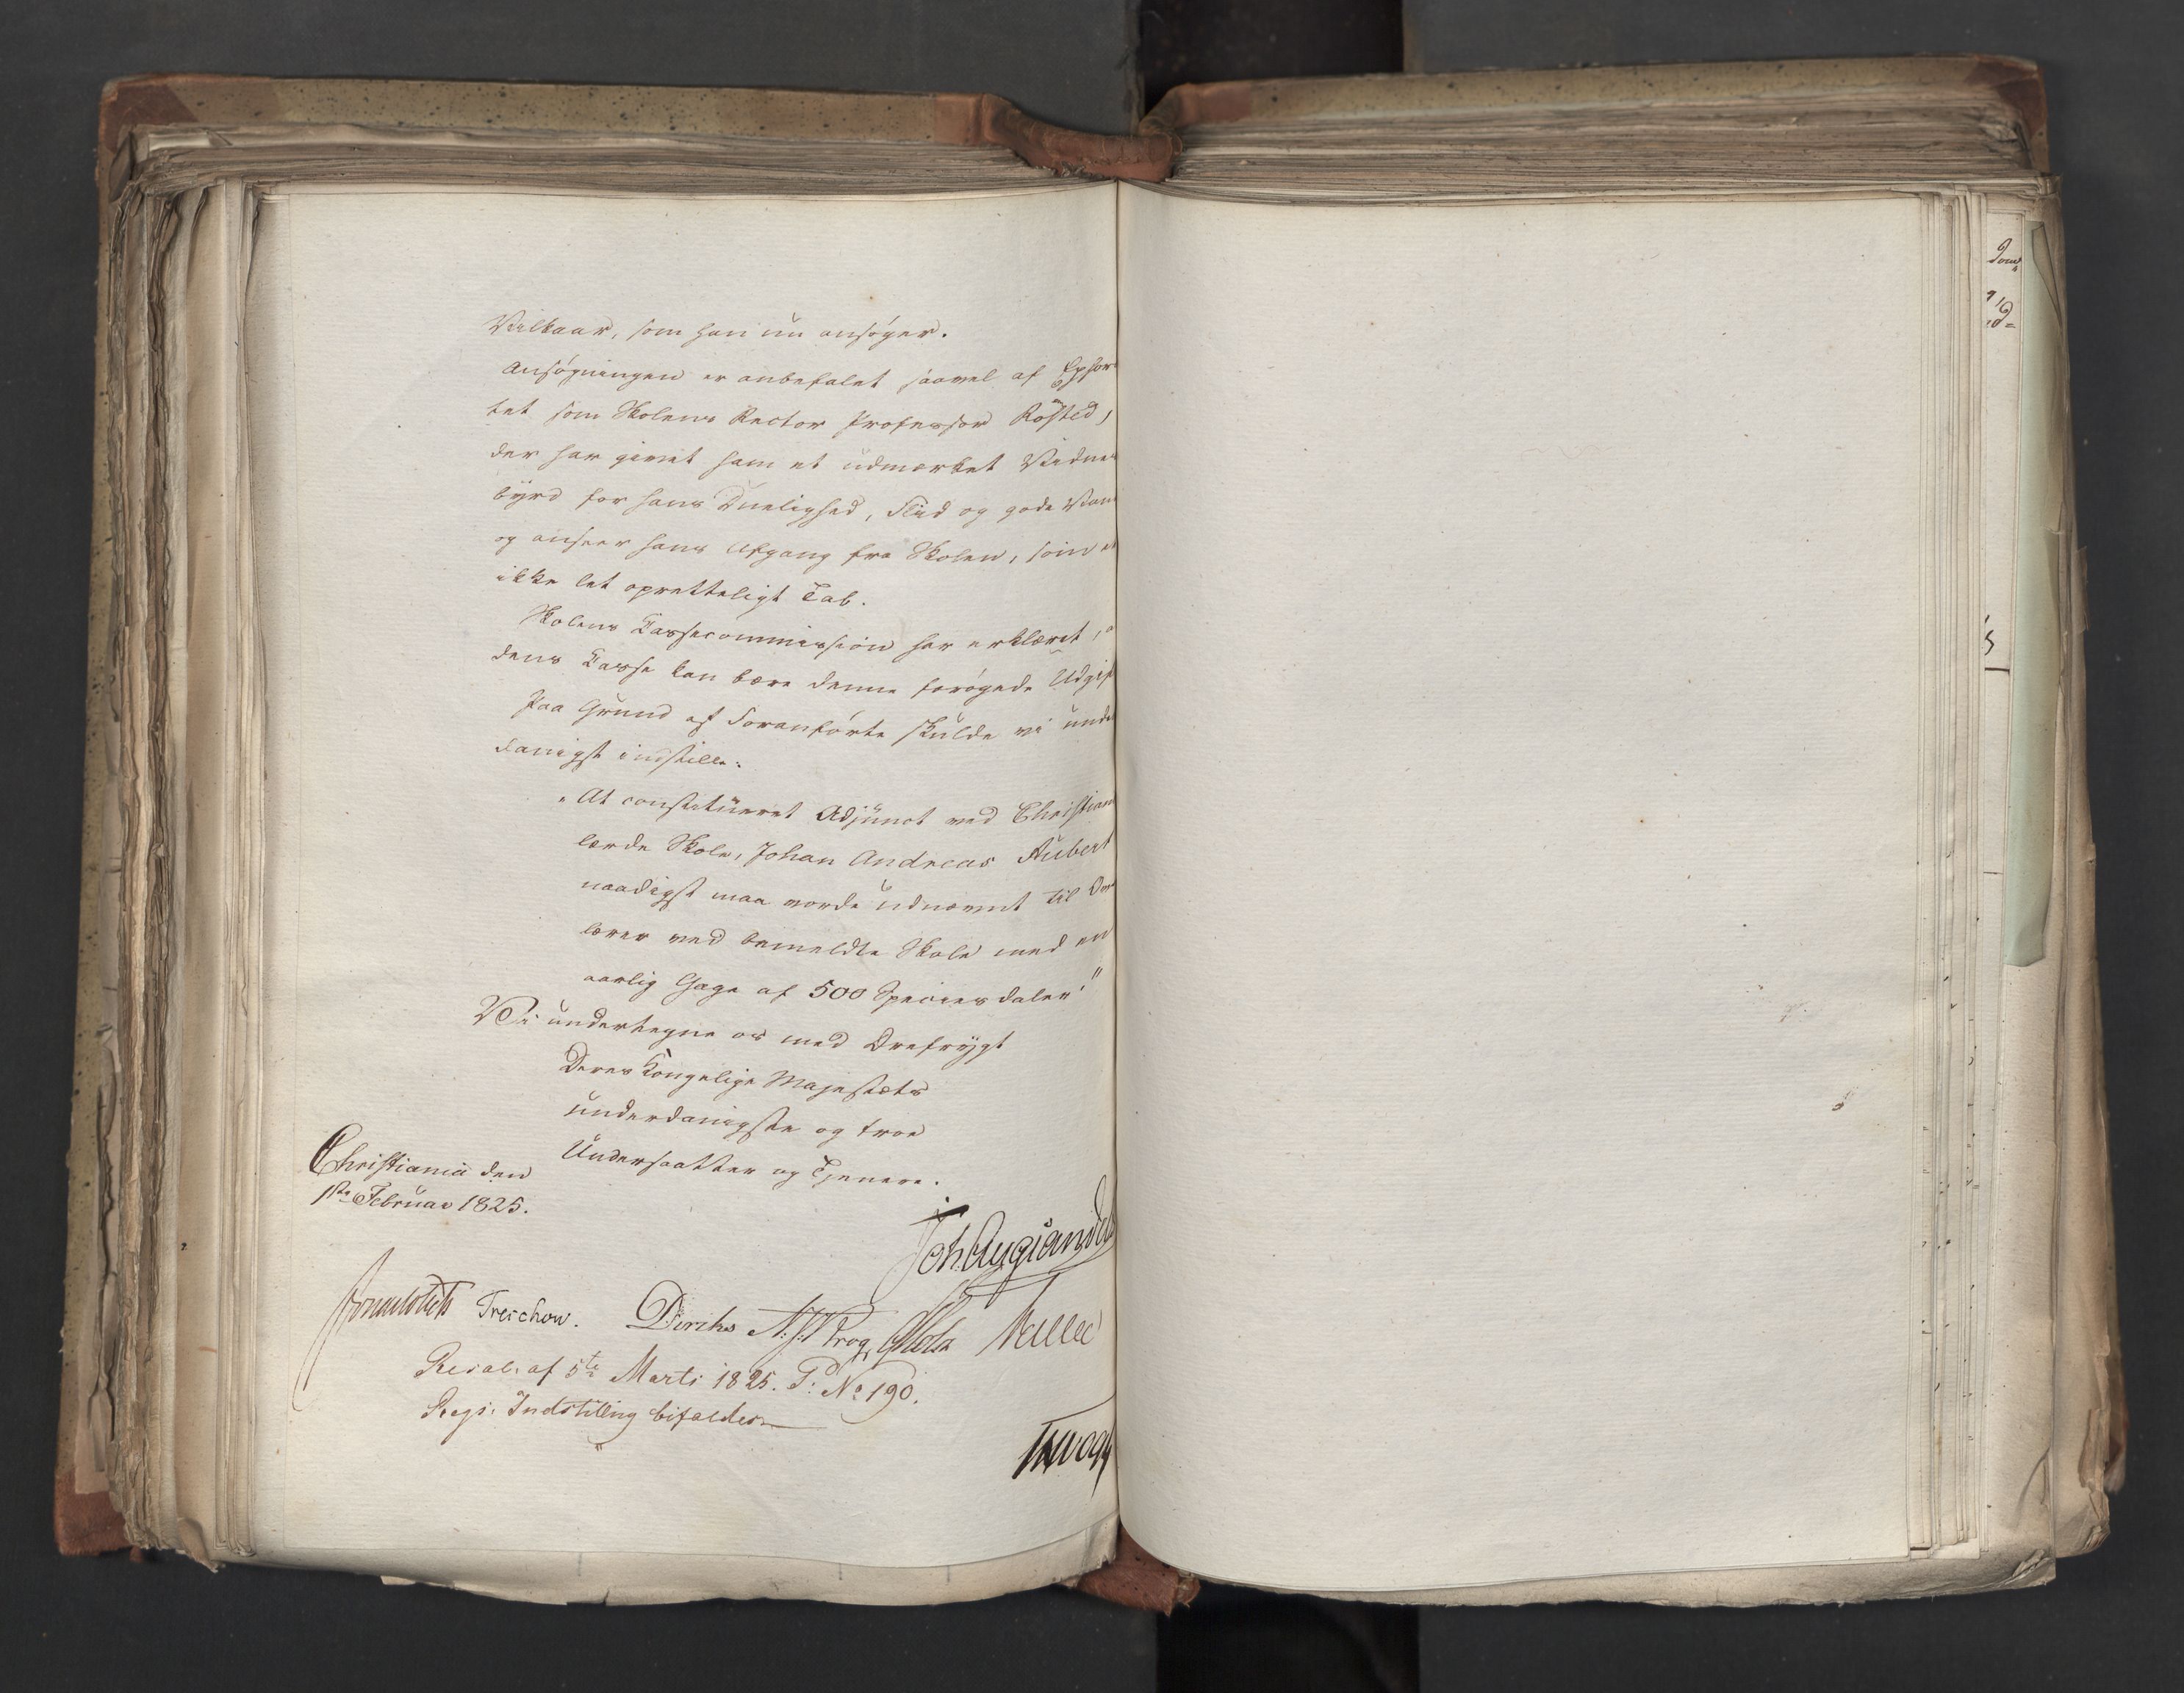 Vilkaar, som han nu ansøger.
Ansøgningen er anbefalet saavel af Ephor
tet som Skolens Rector Professor Rosted,
der har givet ham et udmærket Vidnes
byrd for hans Duelighed, Flid og gode Van
og anseer hans Afgang fra Skolen, som et
ikke let opretteligt Tab.
Skolens Cassecommission har erklæret, a
dens Casse kan bære denne forøgede Udgif
Paa Grund af Foranførte skulde vi unde
danigst indstille:
"At constitueret Adjunct ved Christian
lærde Skole, Johan Andreas Aubert
naadigst maa vorde udnævnt til Over
lærer ved bemeldte Skole med en
aarlig Gage af 500 Speciesdaler."
Vi undertegne os med Ærefrygt
Deres Kongelige Majestæts
underdanigste og troe
Undersaatter og Tjenere.
Christiania den
1ste Februar 1825.
Joh. Aug. Sandel
Sommerhielm Treschow. Diriks Krog Holst
Resol. af 5te Marts 1825. P: No 190.
Regs. Indstilling bifaldes